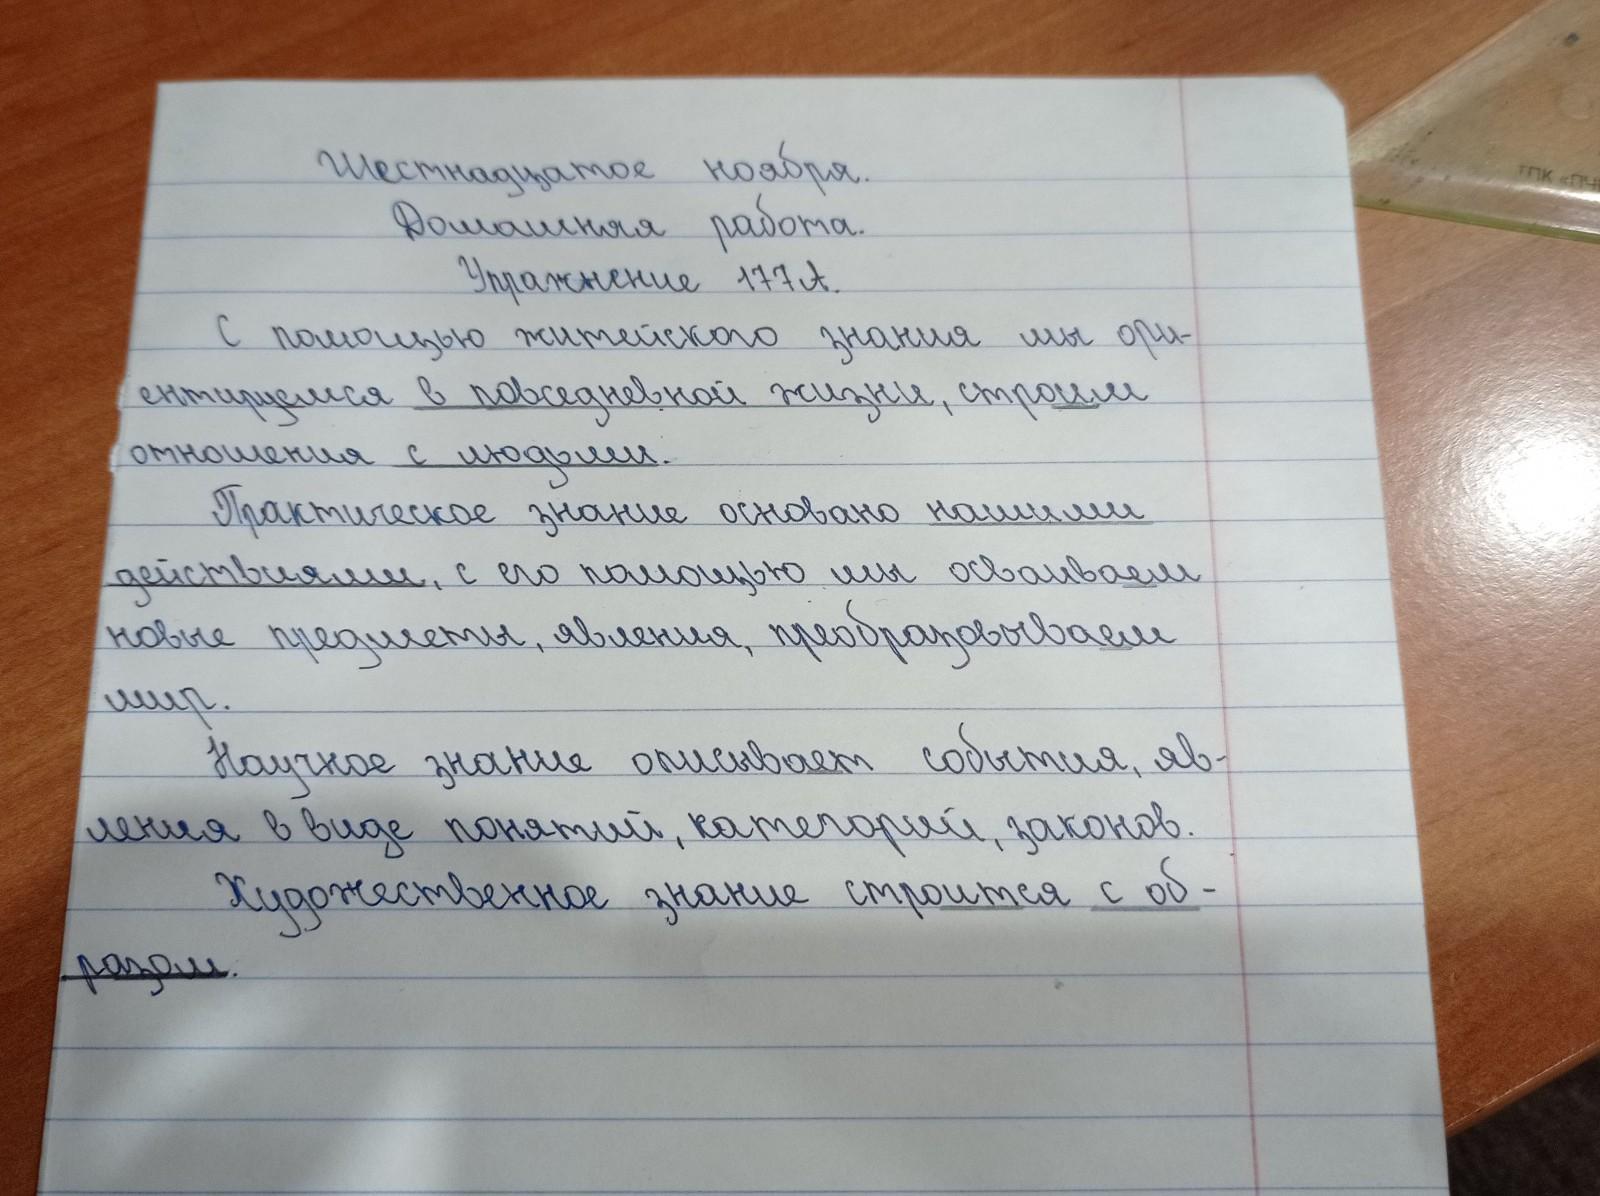 Шестнадцатое ноября.
Домашняя работа.
Упражнение 177А.
С помощью житейского знания мы ори-
ентируемся в повседневной жизни, строим
отношения с людьми.
Практическое знание основано нашими
действиями, с его помощью мы осваиваем
новые предметы, явления, преобразовываем
мир.
Научное знание описывает события, яв-
ления в виде понятий, категорий, законов.
Художественное знание строится с об-
разом.
ТПК